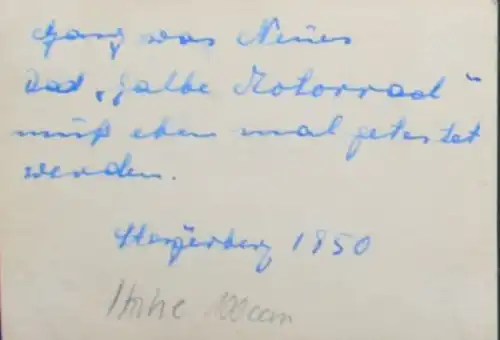 Ganz was Neues
Das „halbe Motorrad“
muß eben mal getestet
werden.
1950
Höhe 100 ccm